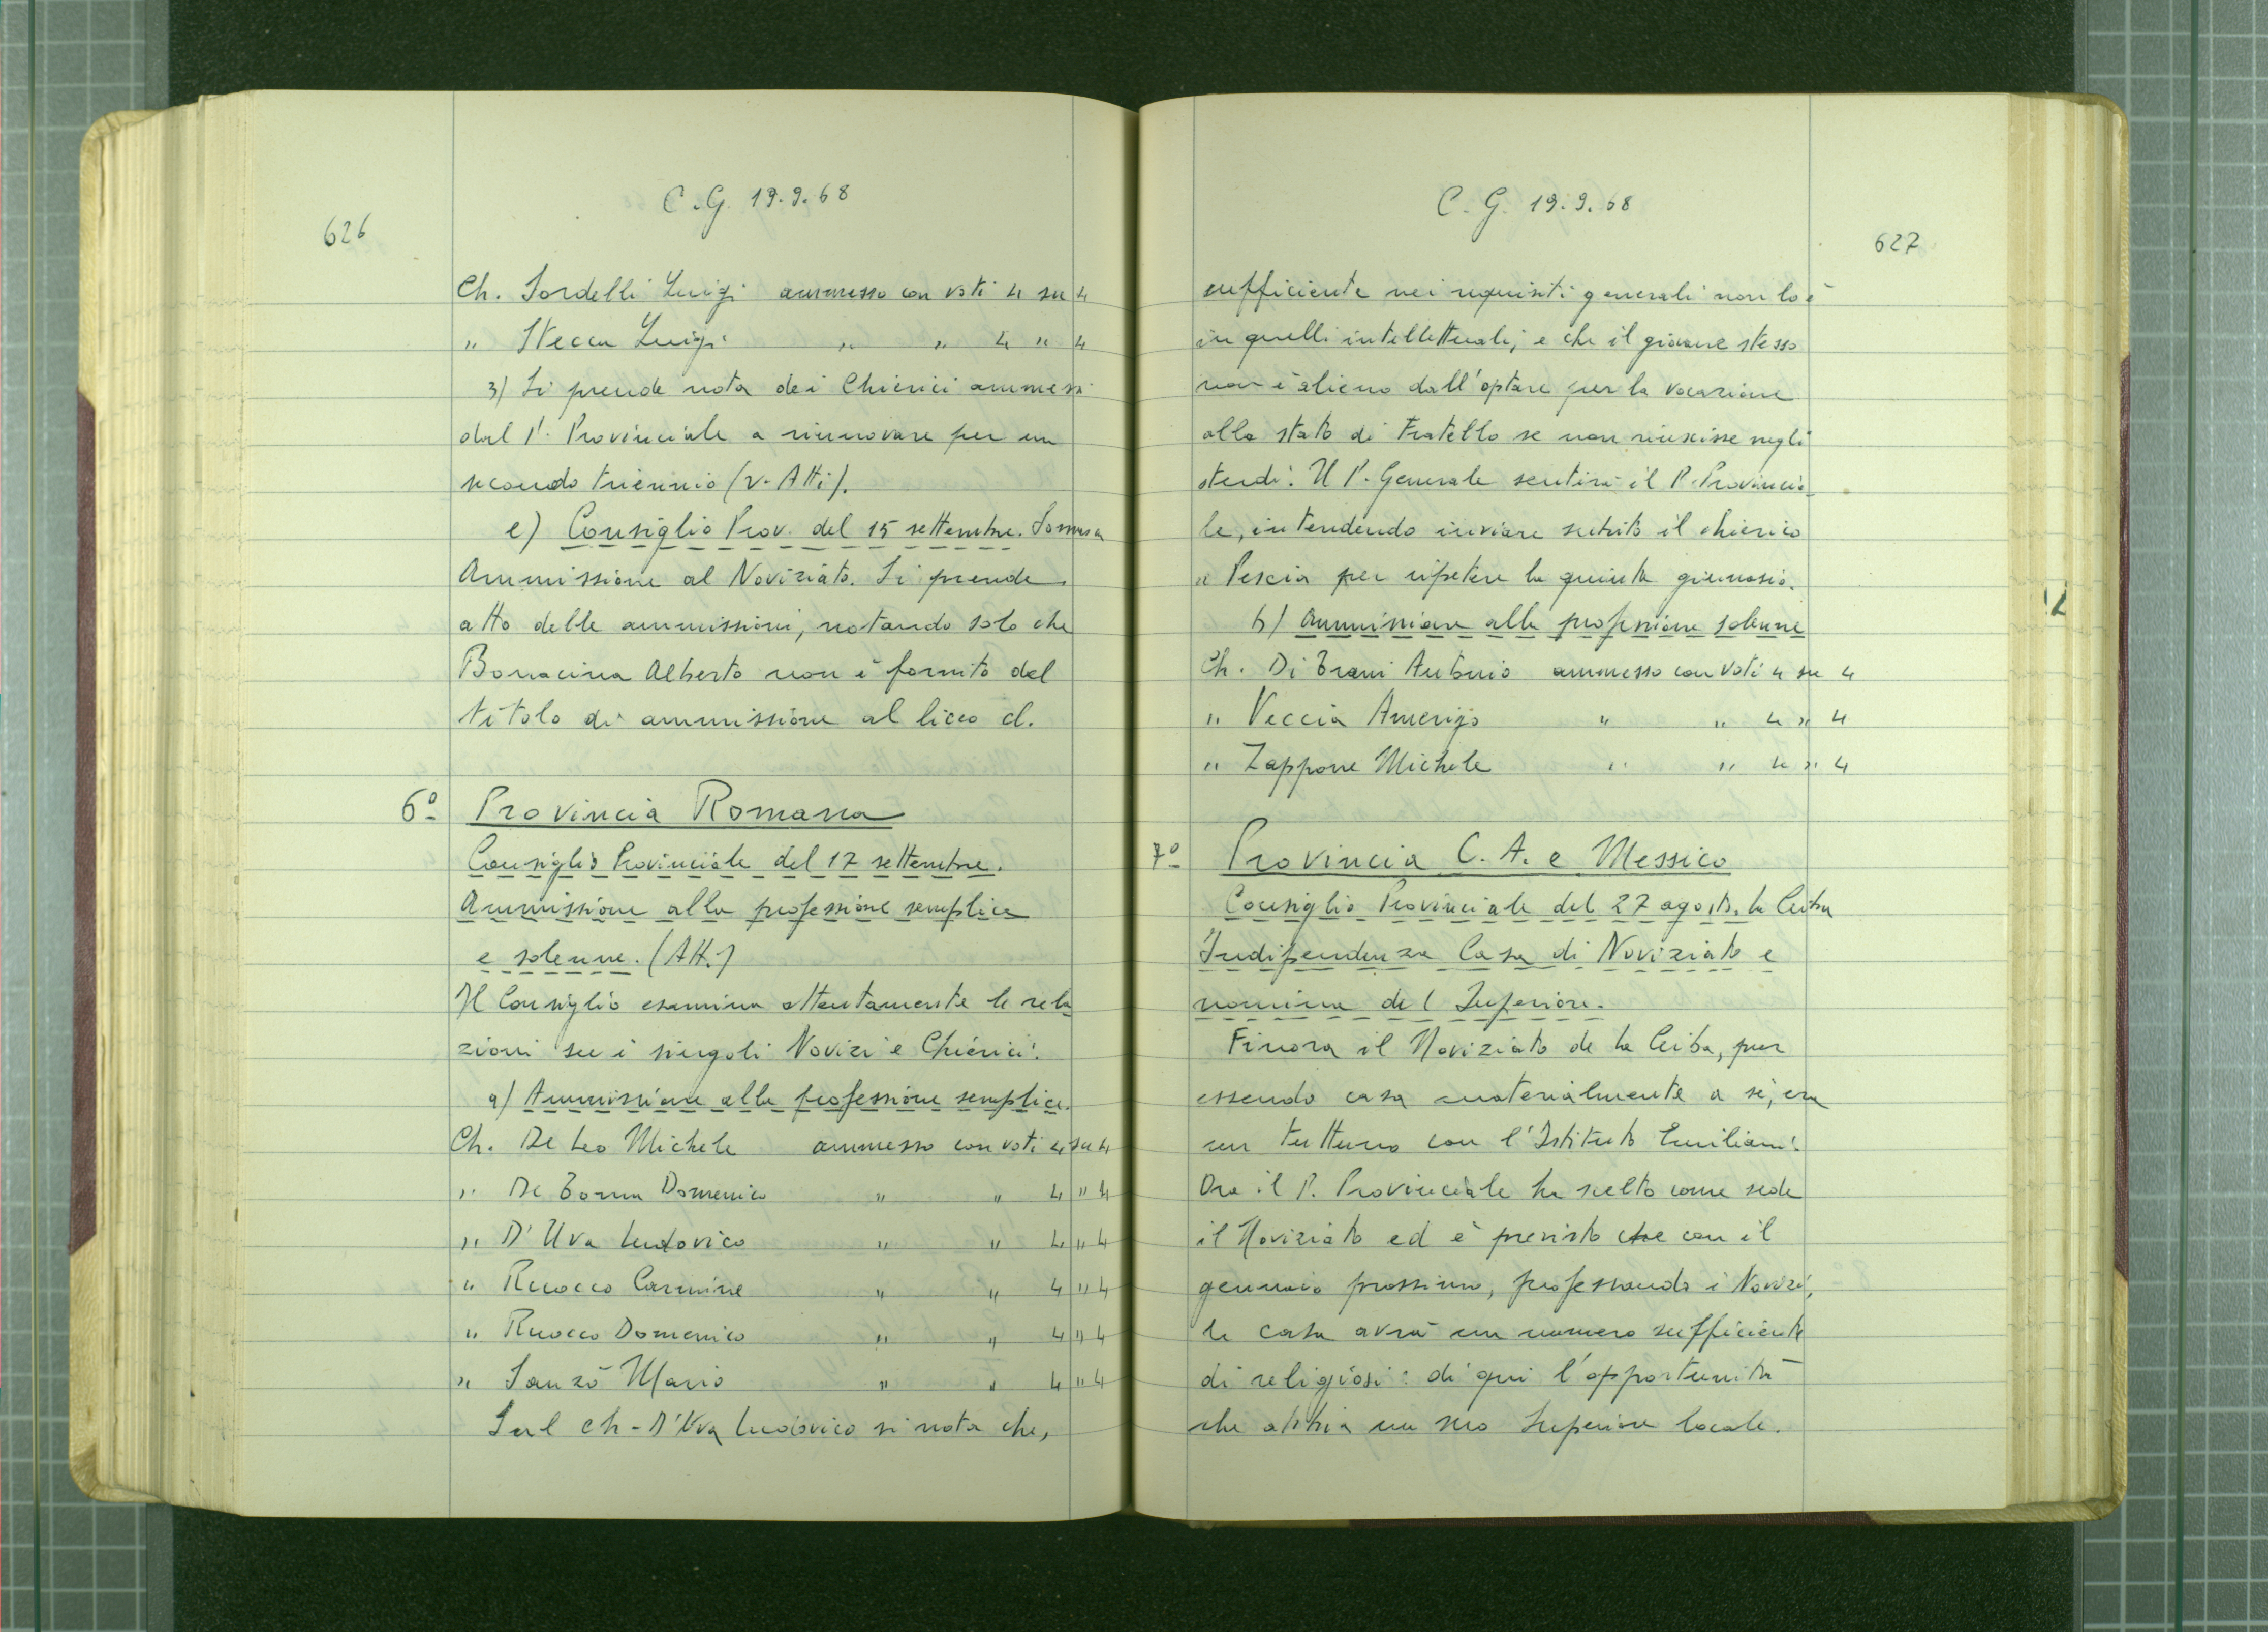 626
C.G. 19.9.68
Ch. Sordelli Luigi ammesso con voti 4 su 4
" Stecca Luigi " " 4 " 4
3) Si prende nota dei Chierici ammessi
dal P. Provinciale a rinnovare per un
secondo triennio (v. Atti).
e) Consiglio Prov. del 15 settembre. Somasca
Ammissione al Noviziato. Si prende
atto delle ammissioni, notando solo che
Bonacina Alberto non è fornito del
titolo di ammissione al liceo cl.
6º Provincia Romana
Consiglio Provinciale del 17 settembre.
Ammissione alla professione semplice
e solenne. (Att.)
Il Consiglio esamina attentamente le rela
zioni su i singoli Novizi e Chierici.
a) Ammissione alla professione semplice.
Ch. De Leo Michele ammesso con voti 4 su 4
" De Domenico " " 4 " 4
" D'Uva Ludovico " " 4 " 4
" Ruocco Carmine " " 4 " 4
" Ruocco Domenico " " 4 " 4
" Sanzò Mario " " 4 " 4
Sul ch. D'Uva Ludovico si nota che,
C.G. 19.9.68
627
sufficiente nei requisiti generali non lo è
in quelli intellettuali; e che il giovane stesso
non è alieno dall'optare per la vocazione
allo stato di Fratello se non riuscisse negli
studi. Il P. Generale sentirà il P. Provincia_
le, intendendo inviare subito il chierico
a Pescia per ripetere la quinta ginnasio.
b) Ammissione alla professione solenne
Ch. Di Antonio ammesso con voti 4 su 4
" Veccia Amerigo " " 4 " 4
" Zappone Michele " " 4 " 4
7º Provincia C.A. e Messico
Consiglio Provinciale del 27 agosto. La Ceiba
Indipendenza Casa di Noviziato e
nomina del Superiore.
Finora il Noviziato de la Ceiba, pur
essendo casa materialmente a sè, era
un tuttuno con l'Istituto Emiliani.
Ora il P. Provinciale ha scelto come sede
il Noviziato ed è previsto che con il
gennaio prossimo, professando i Novizi,
la casa avrà un numero sufficiente
di religiosi: di qui l'opportunità
che abbia un suo Superiore locale.